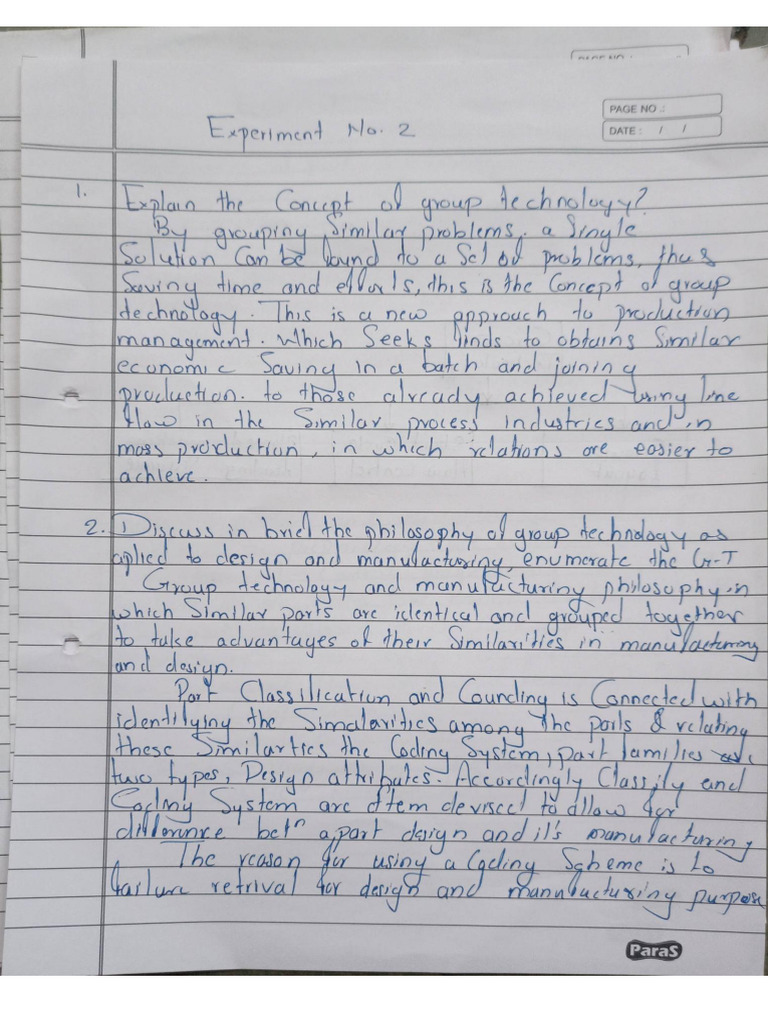 PAGE NO.:
DATE: / /
Experiment No. 2
1. Explain the Concept of group technology?
By grouping Similar problems, a Single
Solution Can be found to a Set of problems, thus
Saving time and efforts, this is the Concept of group
technology. This is a new approach to production
management. Which Seeks finds to obtains Similar
economic Saving in a batch and joining
production. to those already achieved using line
flow in the Similar process industries and in
mass production, in which relations are easier to
achieve.
2. Discuss in brief the philosophy of group technology as
aplied to design and manufacturing, enumerate the G-T
Group technology and manufacturing philosophy in
which Similar parts are identical and grouped together
to take advantages of their Similarities in manufacturing
and design.
Part Classification and Counding is Connected with
identifying the Simalarities among the parts & relating
these Similarties the Coding System, part families
two types, Design attributes. Accordingly Classify and
Coding System are devised to allow for
difference betn a part design and it's manufacturing
The reason for using a Coding Scheme is to
failure retrival for design and manufacturing purpose
ParaS